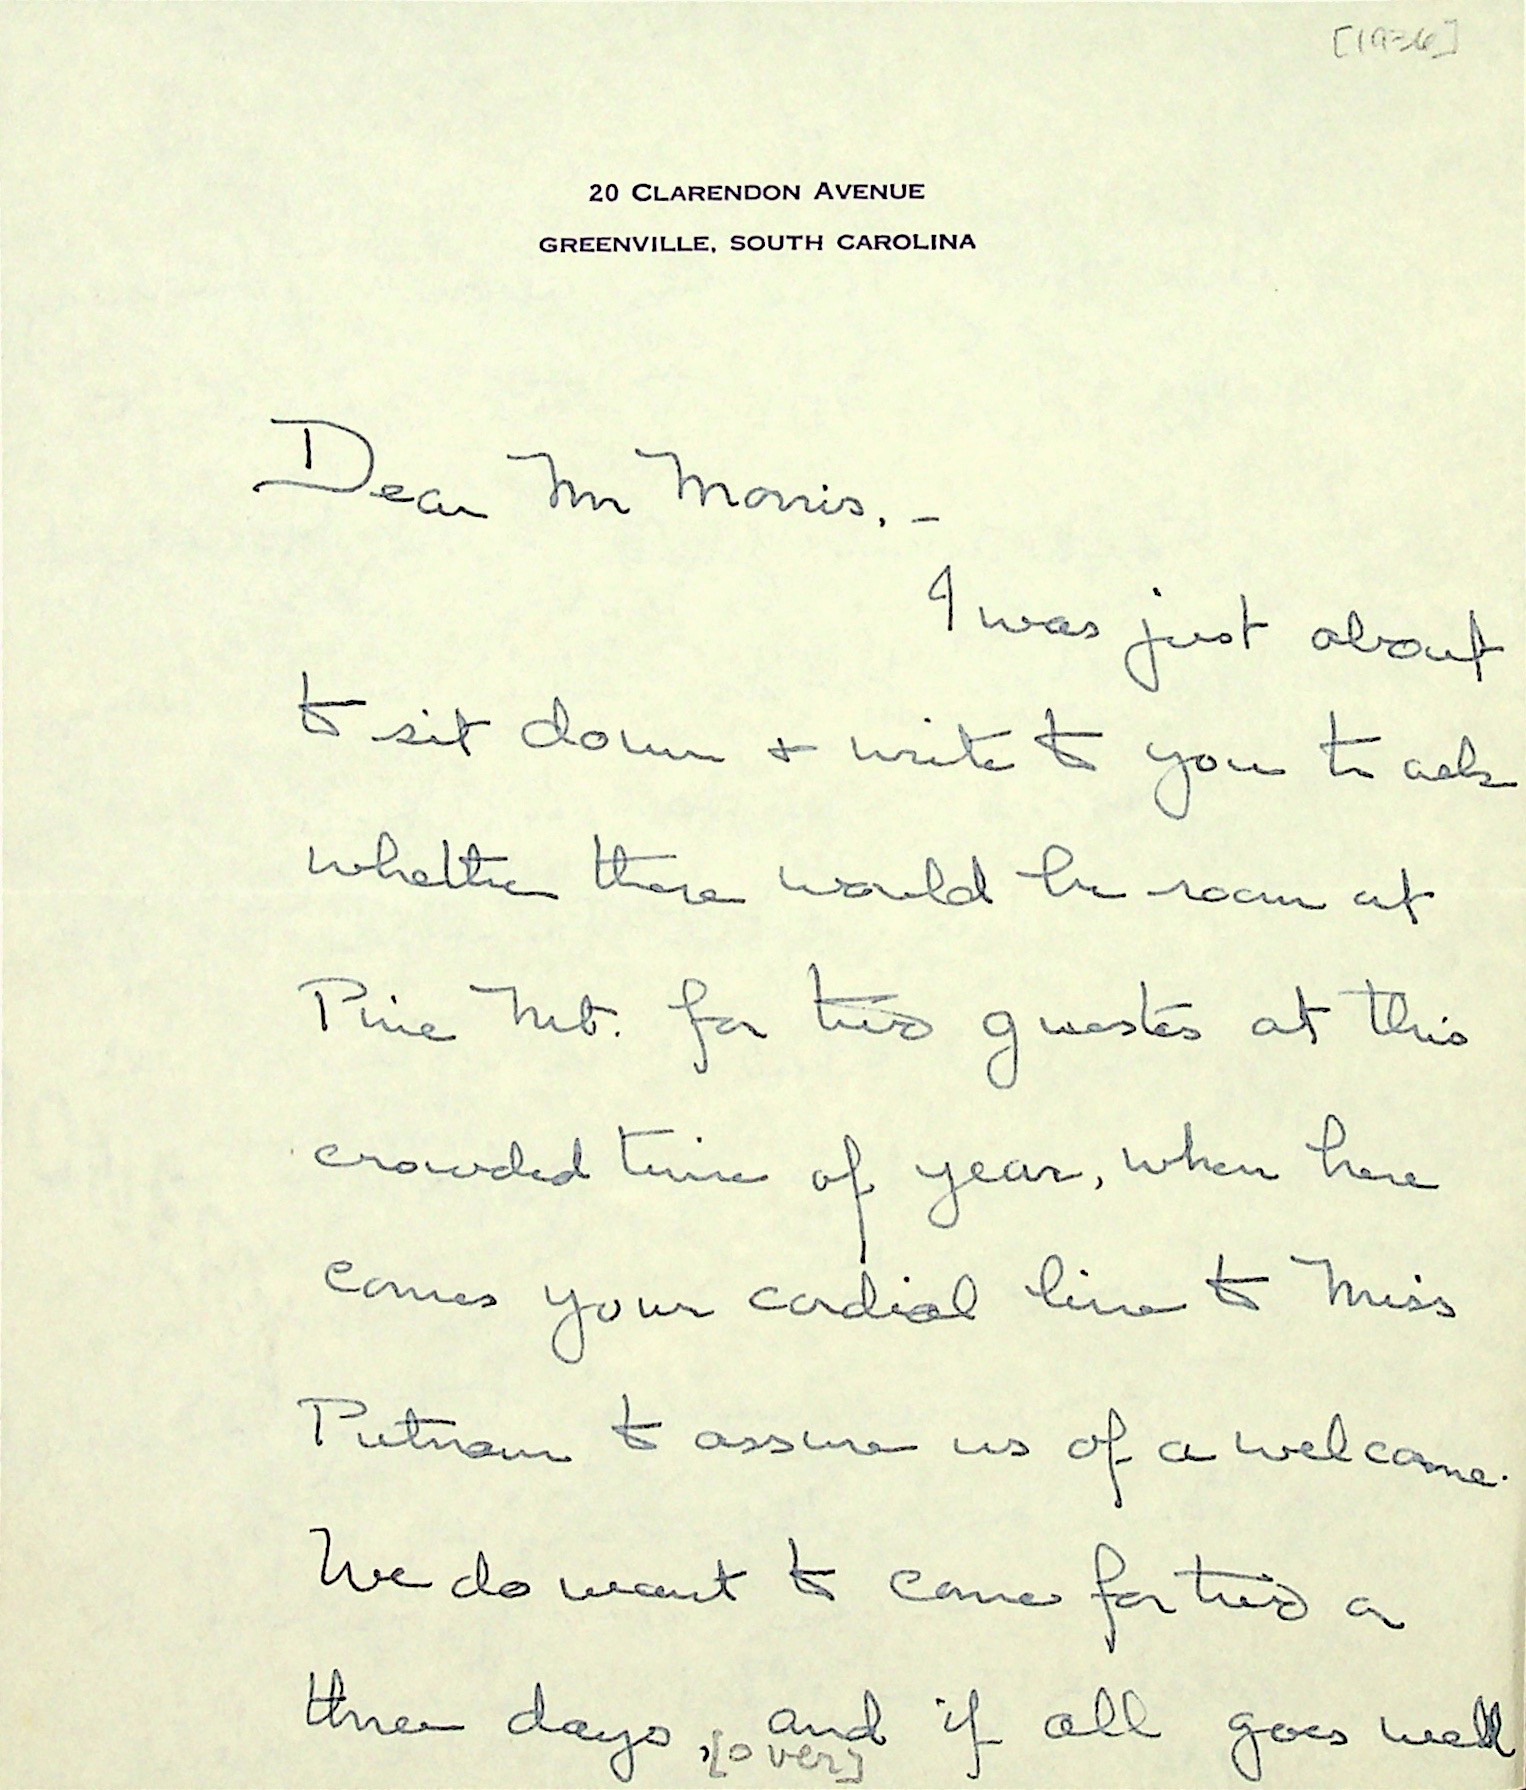 [1936]
20 CLARENDON AVENUE
GREENVILLE, SOUTH CAROLINA
Dear Mr Morris, -
I was just about
to sit down + write to you to ask
whether there would be room at
Pine Mt. for two guests at this
crowded time of year, when here
comes your cordial line to Miss
Putnam to assure us of a welcome.
We do want to come for two or
three days, and if all goes well
[over]